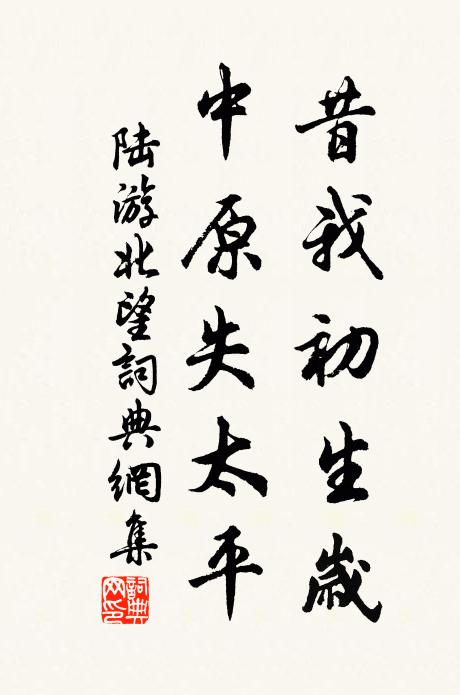 昔我初生歲
中原失太平
陸游北望詞典網集
詞典网印